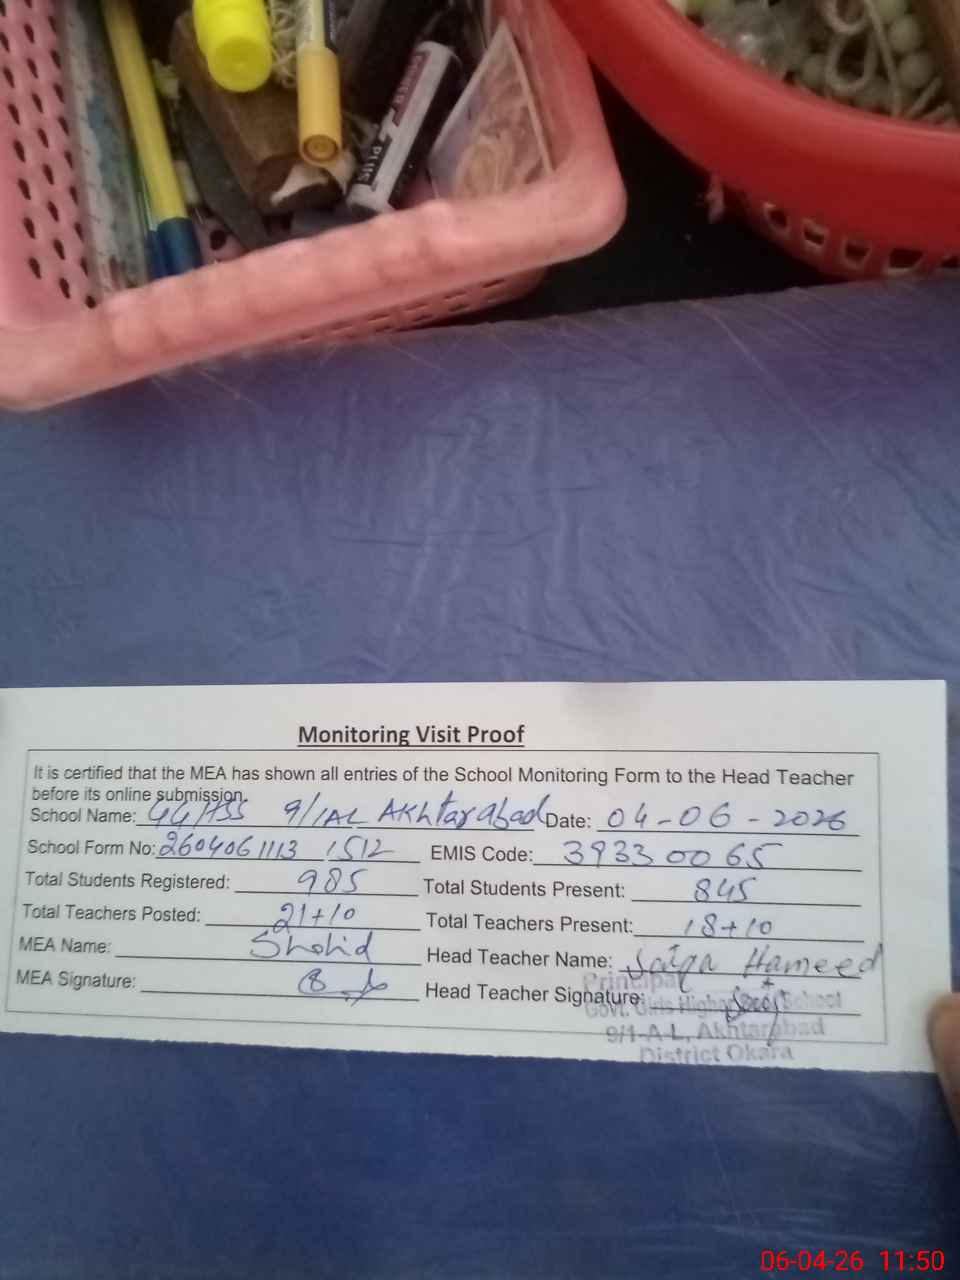 CENTRE
PLUS
Monitoring Visit Proof
It is certified that the MEA has shown all entries of the School Monitoring Form to the Head Teacher
before its online submission.
School Name: GGHSS 9/1AL Akhtarabad Date: 04-06-2026
School Form No: 2604061113 1512 EMIS Code: 39330065
Total Students Registered: 985 Total Students Present: 845
Total Teachers Posted: 21+10 Total Teachers Present: 18+10
MEA Name: Shahid Head Teacher Name: Saiqa Hameed
MEA Signature: Head Teacher Signature:
Principal
Govt. Girls Higher School
9/1-A-L, Akhtarabad
District Okara
06-04-26 11:50